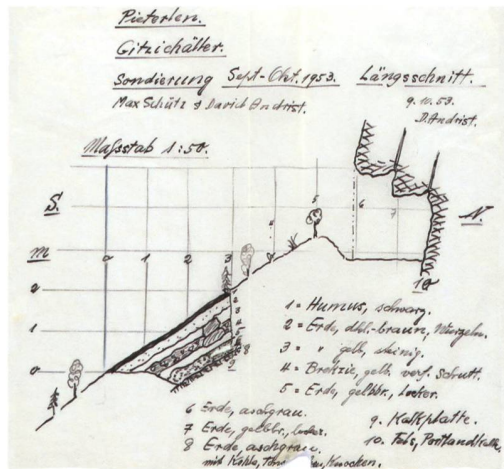 Pieterlen.
Gitzichälter.
Sondierung Sept-Okt. 1953. Längsschnitt.
Max Schütz & David Andrist.
9.10.53.
D. Andrist.
Maßstab 1:50.
S. N.
m 0 1 2 3 4 5 6 7 10
2
1
0
1 = Humus, schwarz.
2 = Erde, dkl.-braun, Wurzeln.
3 = " gelb, steinig.
4 = Brekzie, gelb. verf. Schutt.
5 = Erde, gelbbr., locker.
6 Erde, aschgrau.
7 Erde, gelbbr., locker.
8 Erde, aschgrau
mit Kohle, Knochen.
9. Kalkplatte.
10. Fels, Portlandkalk.